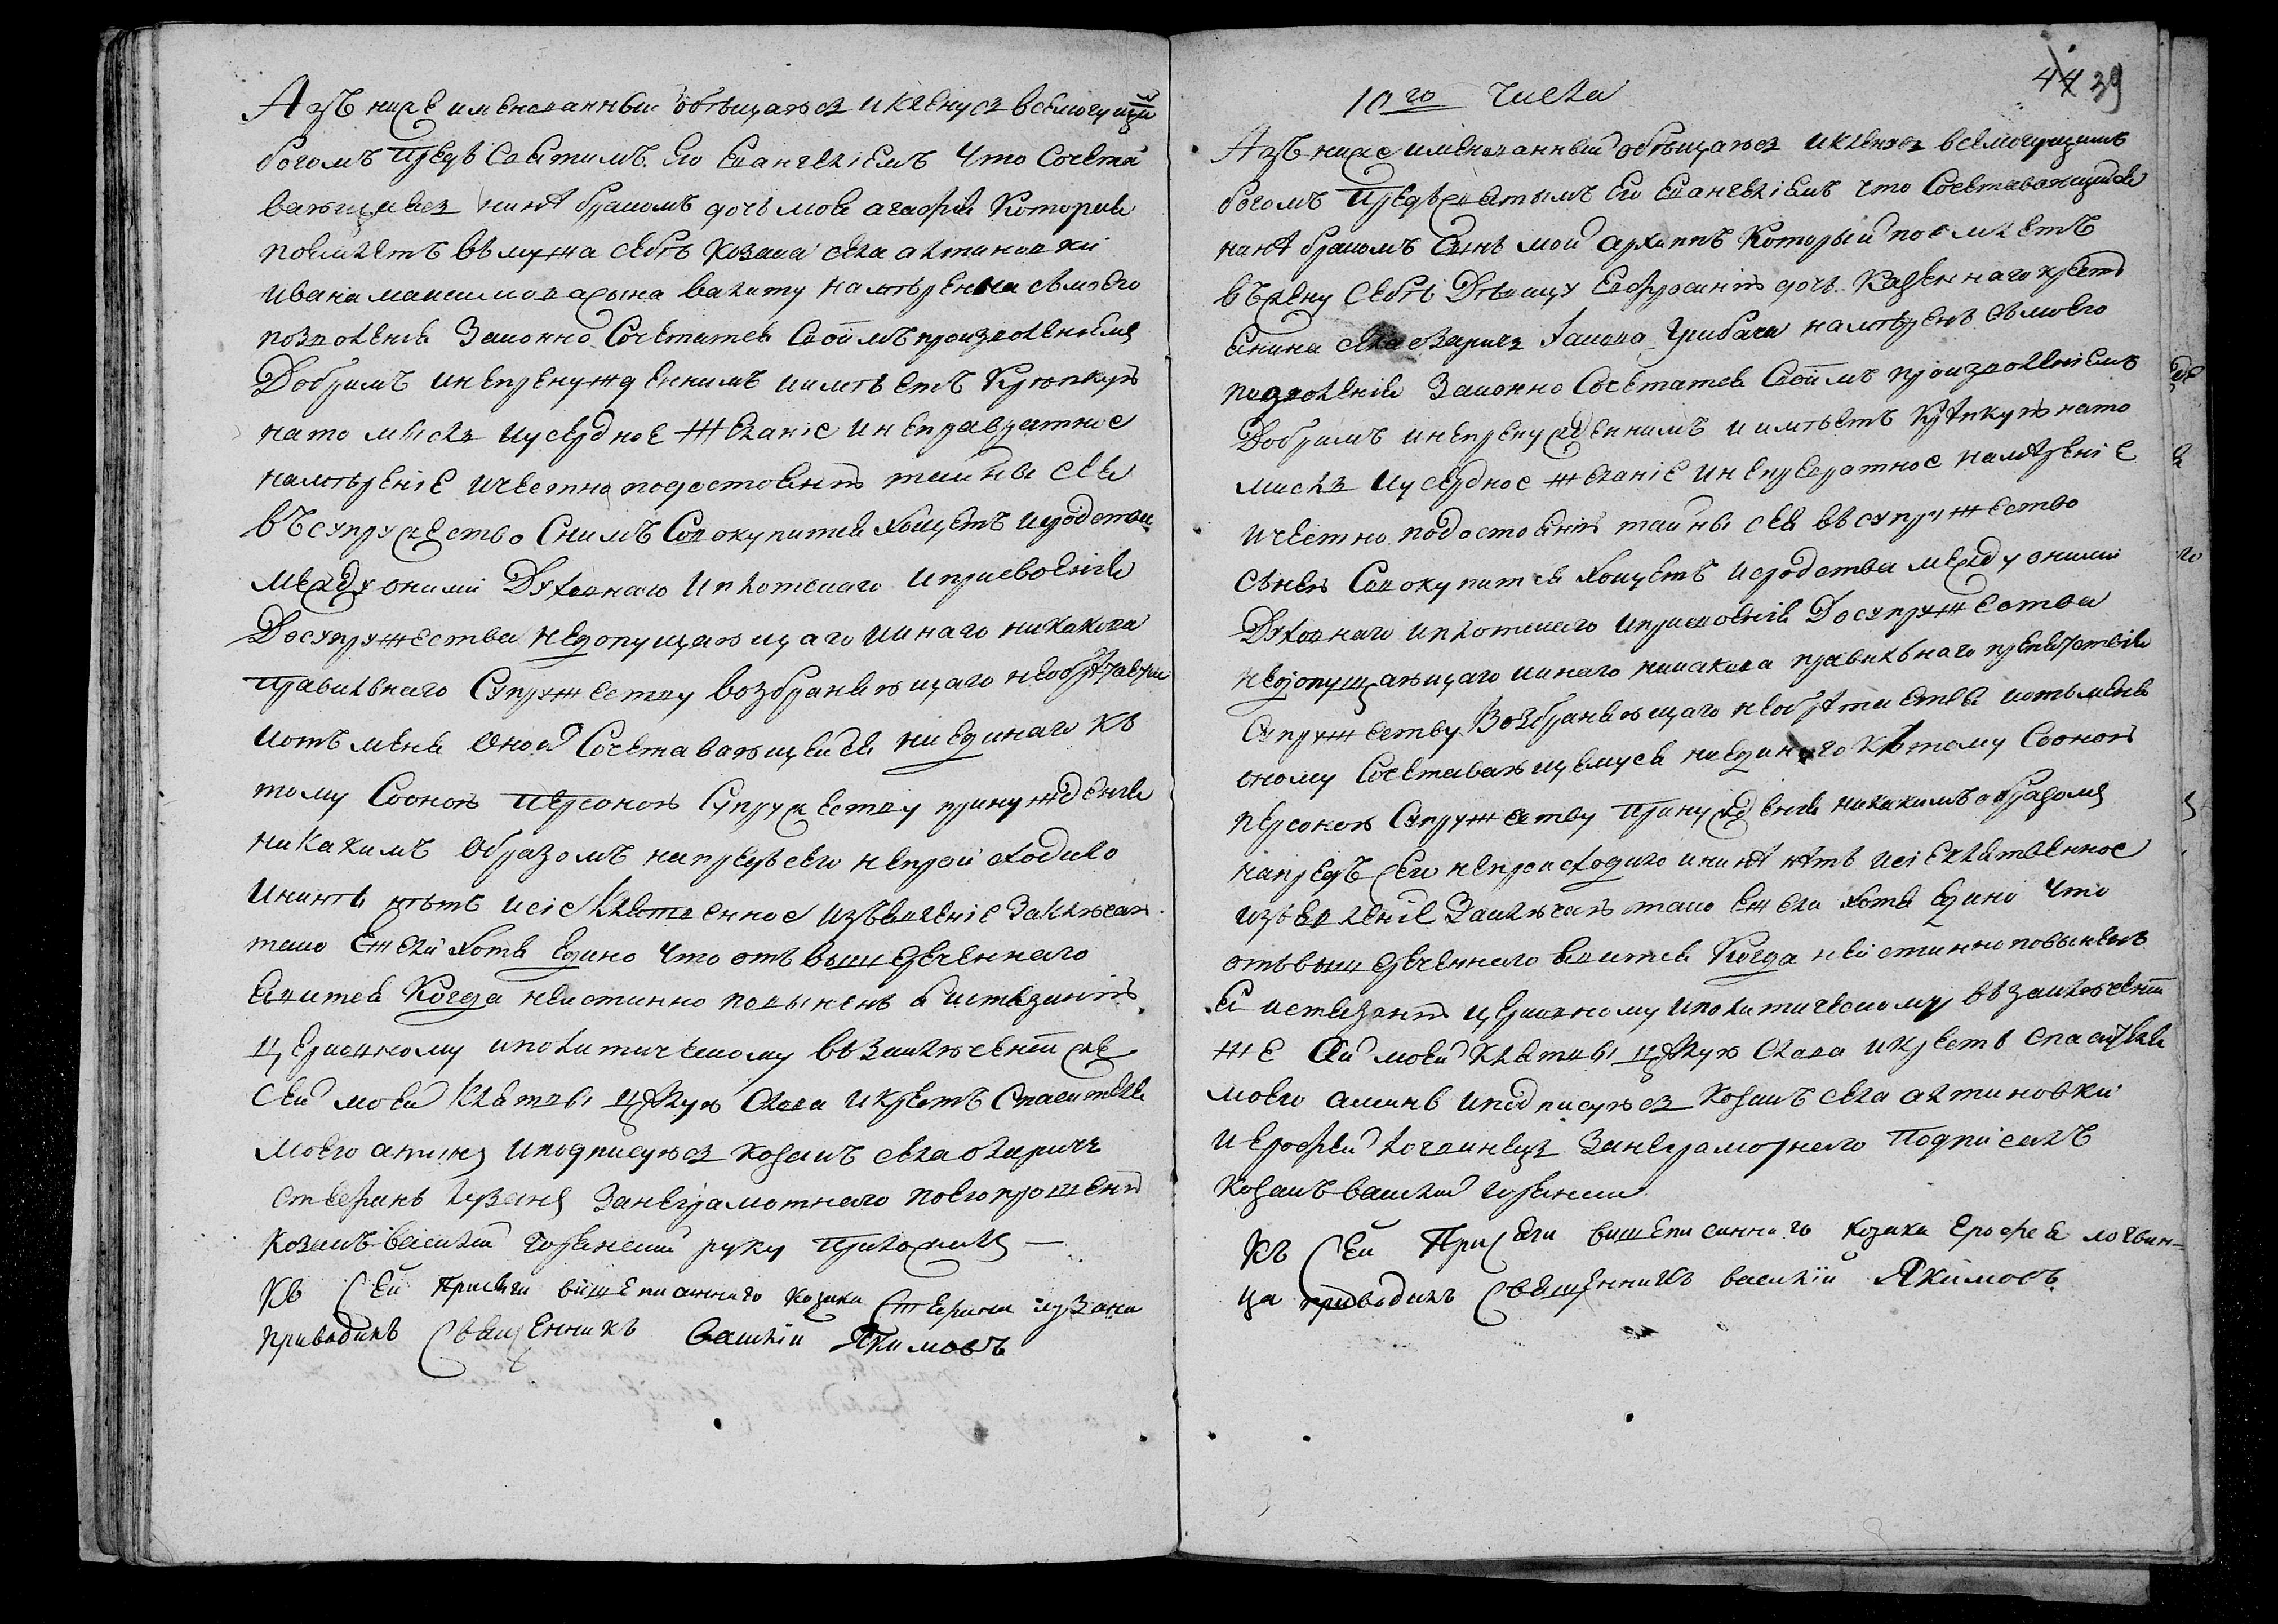 Азъ ниже именованный обѣщаюся и кленуся всемогущи
богомъ предъ святимъ Его Евангелiемъ что сочета
вающияся нинѣ бракомъ дочь моя агафiя которая
поемлетъ въ мужа себѣ козака села алтиновки
ивана максимова сына вакиту намѣренна съ моего
позволенiя законно сочетатся своимъ произволенiемъ
Добримъ и непренужденнимъ и имѣетъ крѣпкую
на то мисль и усердное желанiе и неправратное
намѣренiе и честно по достоянiю тайны сея
въ супружество с нимъ совокупится хощетъ и родства
между оними Духовнаго и плотскаго и присвоенiя
До супружества недопущающаго и инаго никакова
правилнаго супружеству возбраняющаго необрѣтается
и отъ мене оной сочетавающейся ни единаго къ
тому со оною персоною супружеству принужденiя
никакимъ образомъ напредъ сего непроисходило
и нинѣ нѣтъ и сiе клятвенное изъявленiе заключаю
тако ежели хотя едино что отъ вышереченнаго
явится когда неистинно повиненъ я истязанiю
церковному и политическому въ заключенiи же
сей моей клятвы цѣлую слова и крестъ спасителя
моего аминь и подписуюся козакъ села обариче
стефанъ лузанъ за неграмотнаго по его прошенiю
козакъ василий горянский руку приложилъ —
Къ сей присяги вишеписаннаго козака стефана лузана
приводилъ священникъ василiй Якимовъ
44 39
10го числа
Азъ ниже именованный обѣщаюся и кленуся всемогущимъ
богомъ предъ святымъ Его Евангелiемъ что сочетавающийся
нинѣ бракомъ сынъ мой архиппъ который поемлетъ
въ жену себѣ Дѣвицу Евфросинiю дочь казеннаго крестя
янина села обариче Iакова грибача намѣренъ съ моего
позволенiя законно сочетатся своимъ произволенiемъ
Добримъ и непренужденнимъ и имѣетъ крѣпкую на то
мисль и усердное желанiе и непревратное намѣренiе
и честно по достоянiю тайны сея въ супружество
съ нею совокупится хощетъ и родства между оними
Духовнаго и плотскаго и присвоенiя До супружества
недопущающаго и инаго никакова правилънаго препятствiя
супружеству возбраняющаго необрѣтается и отъ мене
оному сочетавающемуся ни единаго къ тому со оною
персоною супружеству принужденiя никакимъ образомъ
напредъ сего непроисходило и нинѣ нѣтъ и сiе клятвенное
изъявленiе заключаю тако ежели хотя едино что
отъ вышереченнаго явится когда неистинно повиненъ
я истязанiю церковному и политическому въ заключенiи
же сей моей клятвы цѣлую слова и крестъ спасителя
моего аминь и подписуюся козакъ села алтиновки
иерофей логвинецъ за неграмотнаго подписалъ
козакъ василий горянский
Къ сей присяги вишеписаннаго козака Ерофея логвин=
ца приводилъ священникъ василiй Якимовъ